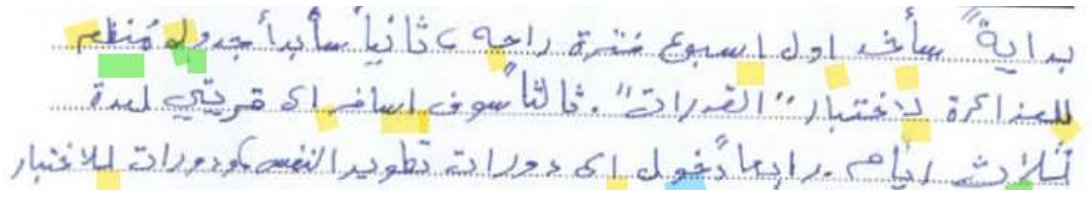 بدايةً سأخد اول اسبوع فترة راحه، ثانياً سأبدأ جدول مُنظم
للمذاكرة لاختبار "القدرات". ثالثاً سوف اسافر الى قريتي لمدة
ثلاث ايام. رابعاً دخول الى دورات تطوير النفس، ودورات للاختبار